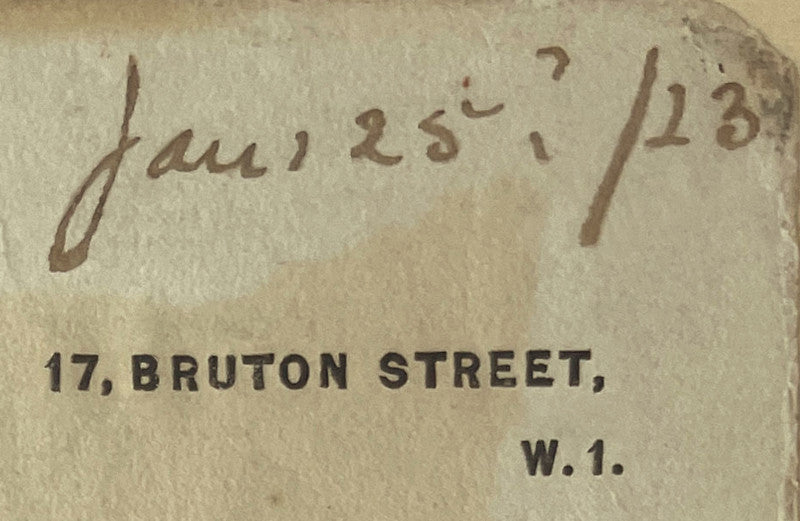 Jan: 25th /23
17, BRUTON STREET,
W.1.